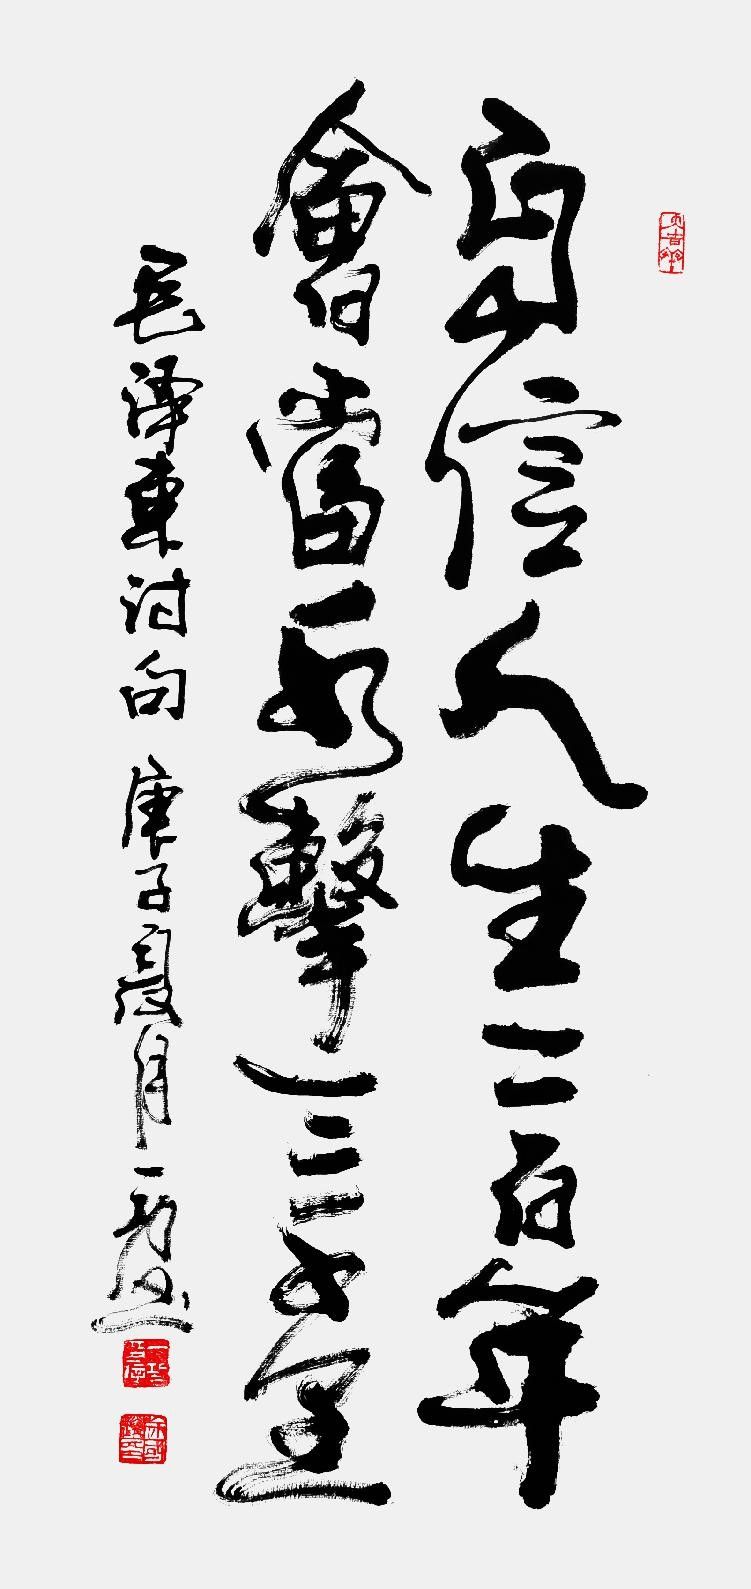 自信人生二百年
會當水擊三千里
毛澤東诗句 庚子夏月一